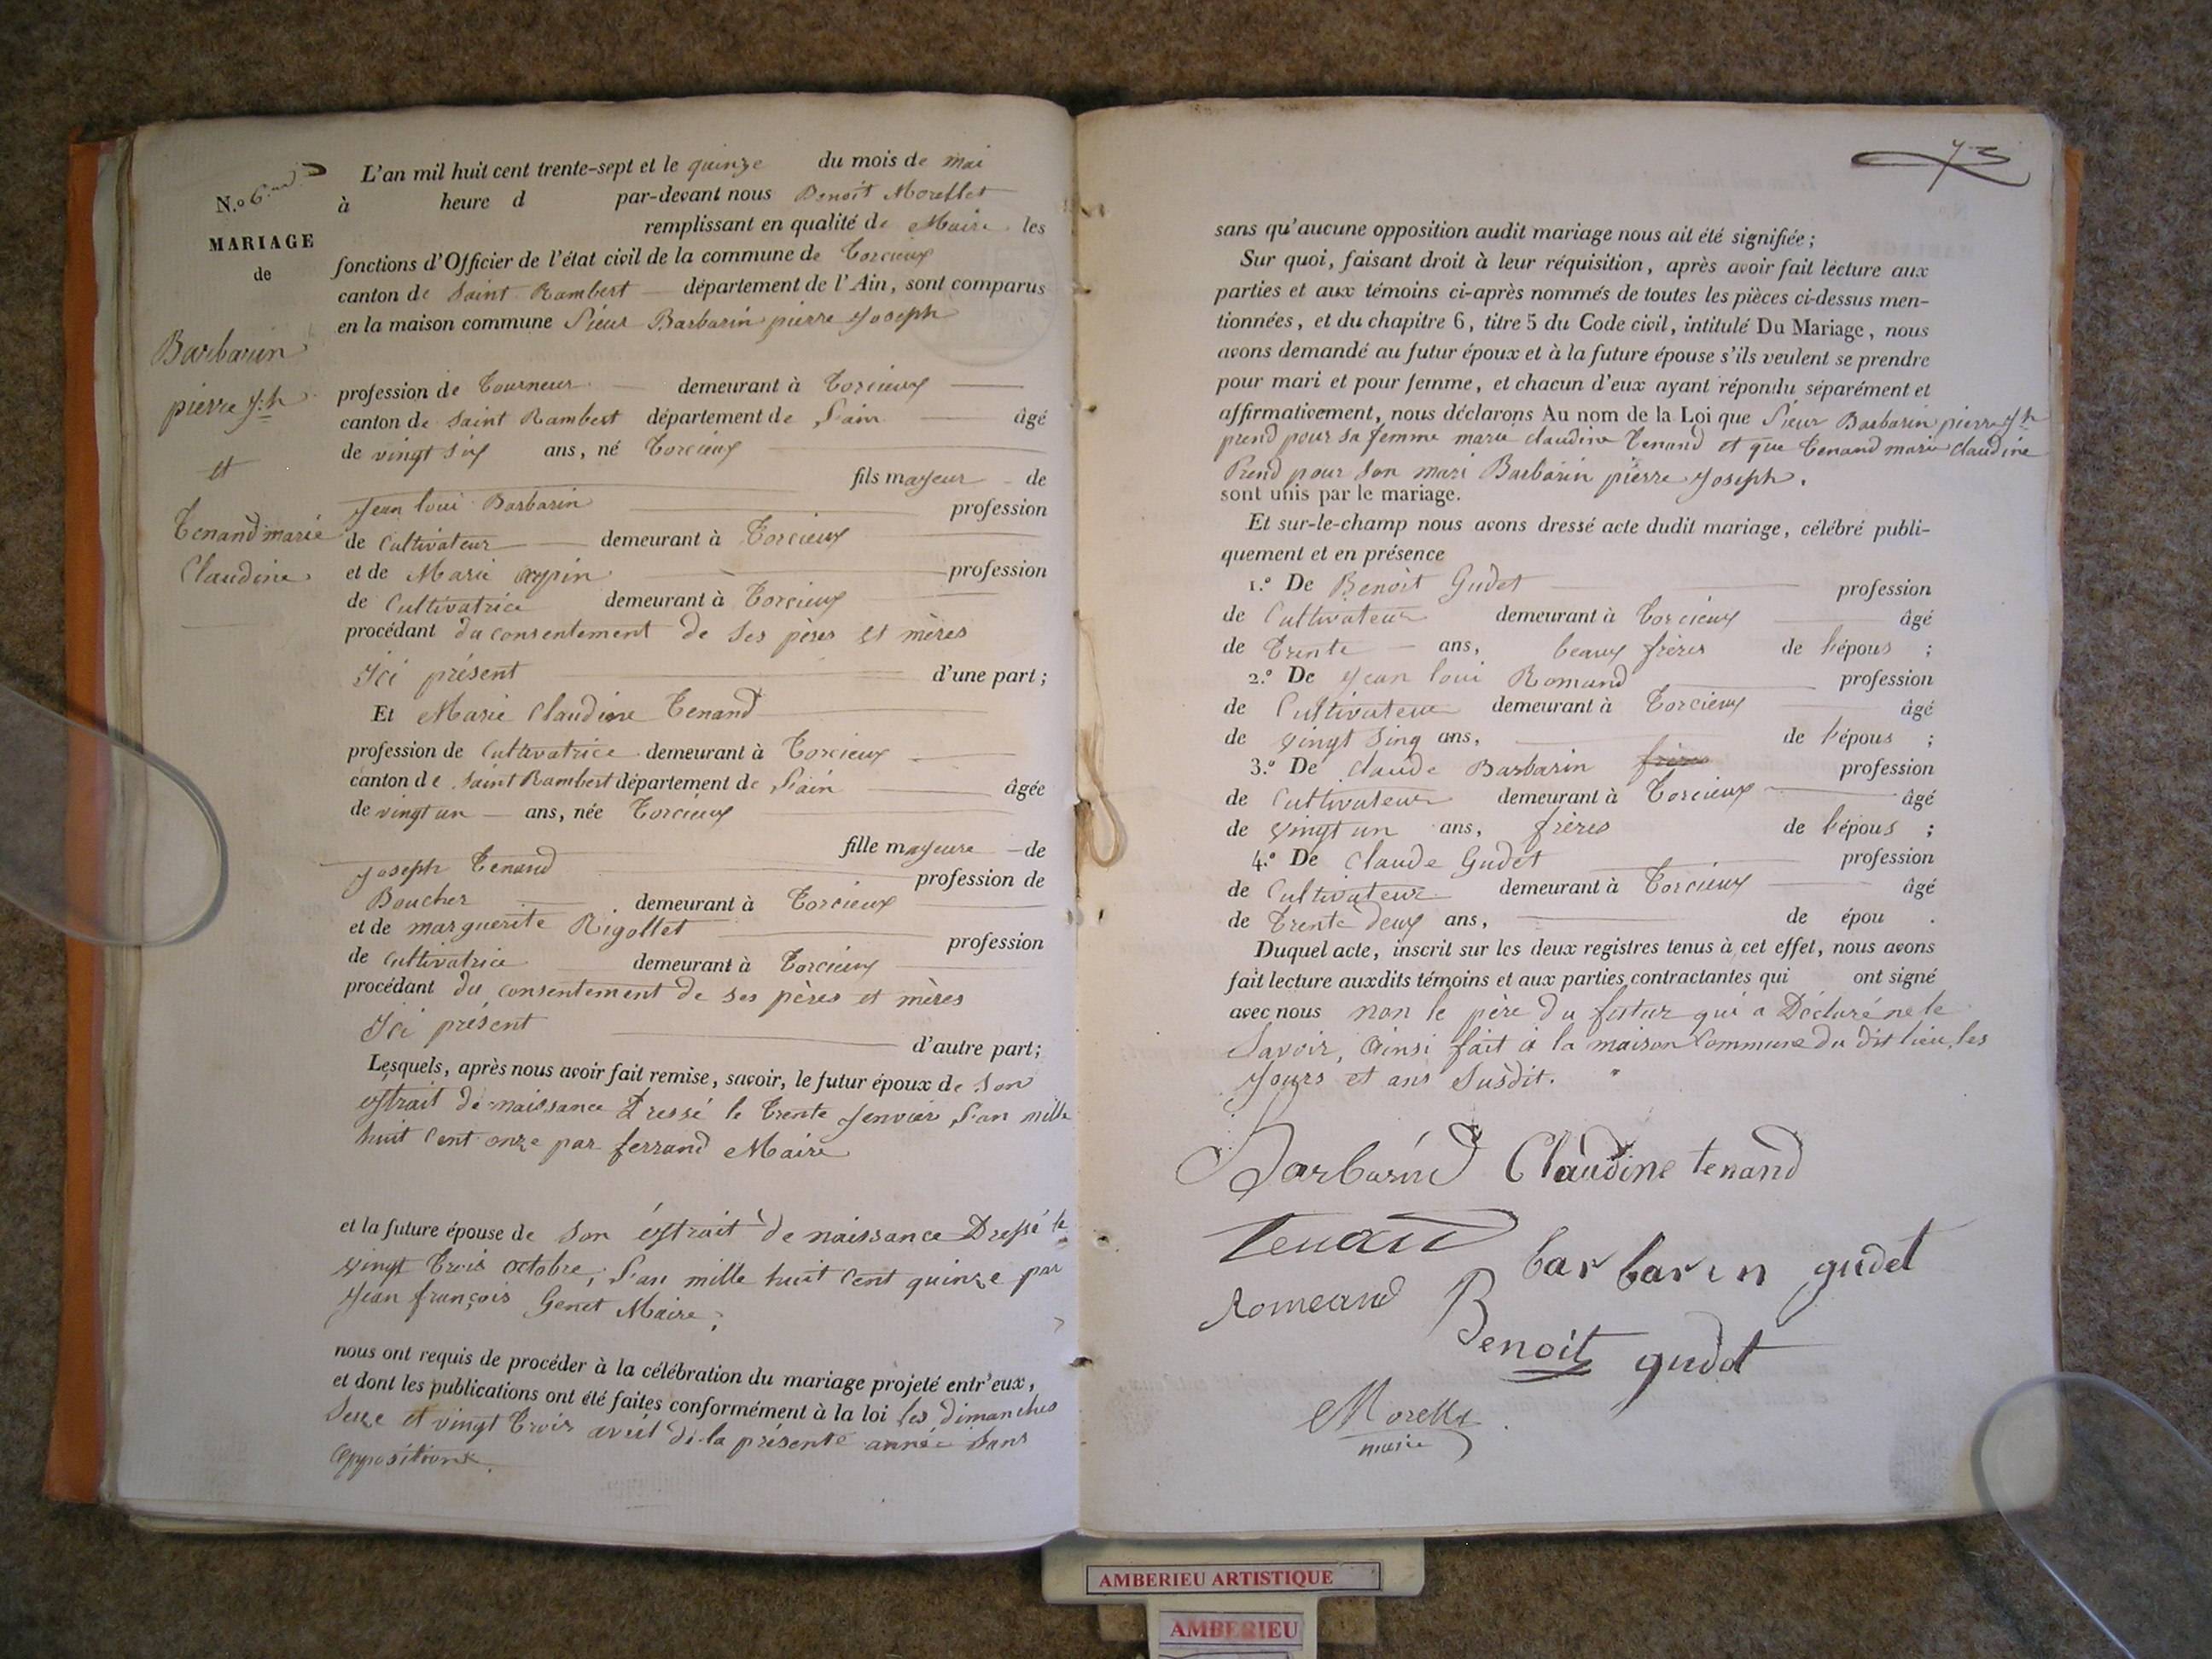 N.o 6
MARIAGE
de
Barbarin
pierre Jh
et
Tenand marie
Claudine
L'an mil huit cent trente-sept et le quinze du mois de mai
à heure d par-devant nous Benoit Morellet
remplissant en qualité de Maire les
fonctions d'Officier de l'état civil de la commune de Torcieux
canton de Saint Rambert département de l'Ain, sont comparus
en la maison commune Sieur Barbarin pierre Joseph
profession de Tourneur demeurant à Torcieux
canton de Saint Rambert département de L'ain âgé
de vingt six ans, né Torcieux
fils majeur de
Jean loui Barbarin profession
de Cultivateur demeurant à Torcieux
et de Marie profession
de Cultivatrice demeurant à Torcieux
procédant du consentement de ses pères et mères
Ici présent d'une part;
Et Marie Claudine Tenand
profession de Cultivatrice demeurant à Torcieux
canton de Saint Rambert département de L'ain âgée
de vingt un ans, née Torcieux
fille majeure de
Joseph Tenand profession de
Boucher demeurant à Torcieux
et de marguerite Rigollet profession
de Cultivatrice demeurant à Torcieux
procédant du consentement de ses pères et mères
Ici présent d'autre part;
Lesquels, après nous avoir fait remise, savoir, le futur époux de son
extrait de naissance Dressé le trente Jenvier L'an mille
huit Cent onze par ferrand Maire
et la future épouse de son extrait de naissance Dressé le
vingt trois octobre, L'an mille huit Cent quinze par
Jean françois Genet Maire;
nous ont requis de procéder à la célébration du mariage projeté entr'eux,
et dont les publications ont été faites conformément à la loi les dimanches
Seize et vingt trois avril de la présente année Sans
oppositions.
73
sans qu'aucune opposition audit mariage nous ait été signifiée;
Sur quoi, faisant droit à leur réquisition, après avoir fait lecture aux
parties et aux témoins ci-après nommés de toutes les pièces ci-dessus men-
tionnées, et du chapitre 6, titre 5 du Code civil, intitulé Du Mariage, nous
avons demandé au futur époux et à la future épouse s'ils veulent se prendre
pour mari et pour femme, et chacun d'eux ayant répondu séparément et
affirmativement, nous déclarons Au nom de la Loi que Sieur Barbarin pierre Jh
prend pour sa femme marie claudine Tenand et que Tenand marie claudine
Prend pour son mari Barbarin pierre Joseph.
sont unis par le mariage.
Et sur-le-champ nous avons dressé acte dudit mariage, célébré publi-
quement et en présence
1.º De Benoit Gudet profession
de Cultivateur demeurant à Torcieux âgé
de Trente ans, beaux frères de l'épous ;
2.º De Jean loui Romand profession
de Cultivateur demeurant à Torcieux âgé
de vingt sinq ans, de l'épous ;
3.º De claude Barbarin frères profession
de Cultivateur demeurant à Torcieux âgé
de vingt un ans, frères de l'épous ;
4.º De Claude Gudet profession
de Cultivateur demeurant à Torcieux âgé
de Trente deux ans, de épou .
Duquel acte, inscrit sur les deux registres tenus à cet effet, nous avons
fait lecture auxdits témoins et aux parties contractantes qui ont signé
avec nous non le père du futur qui a Déclaré ne le
Savoir, Ainsi fait à la maison Commune du dit lieu, les
Jours et ans Susdit.
Barbarin Claudine tenand
Tenand
barbarin gudet
Romand
Benoit gudet
Morellet
maire
AMBERIEU ARTISTIQUE
AMBERIEU